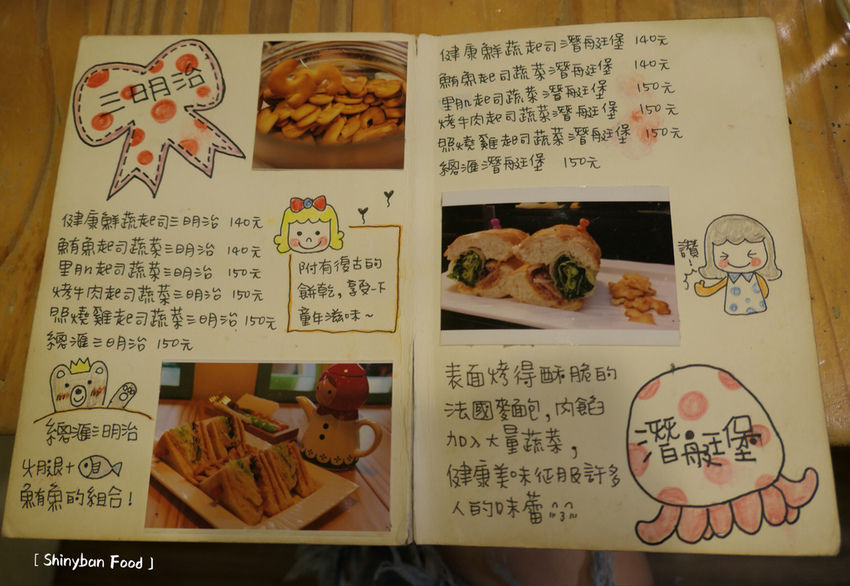 三明治
健康鮮蔬起司三明治 140元
鮪魚起司蔬菜三明治 140元
里肌起司蔬菜三明治 150元
烤牛肉起司蔬菜三明治 150元
照燒雞起司蔬菜三明治 150元
總滙三明治 150元
附有復古的
餅乾,享受一下
童年滋味~
總滙三明治
火腿+
鮪魚的組合!
健康鮮蔬起司潛艇堡 140元
鮪魚起司蔬菜潛艇堡 140元
里肌起司蔬菜潛艇堡 150元
烤牛肉起司蔬菜潛艇堡 150元
照燒雞起司蔬菜潛艇堡 150元
總滙潛艇堡 150元
讚!
表面烤得酥脆的
法國麵包,內餡
加入大量蔬菜,
健康美味征服許多
人的味蕾
潛艇堡
[ Shinyban Food ]